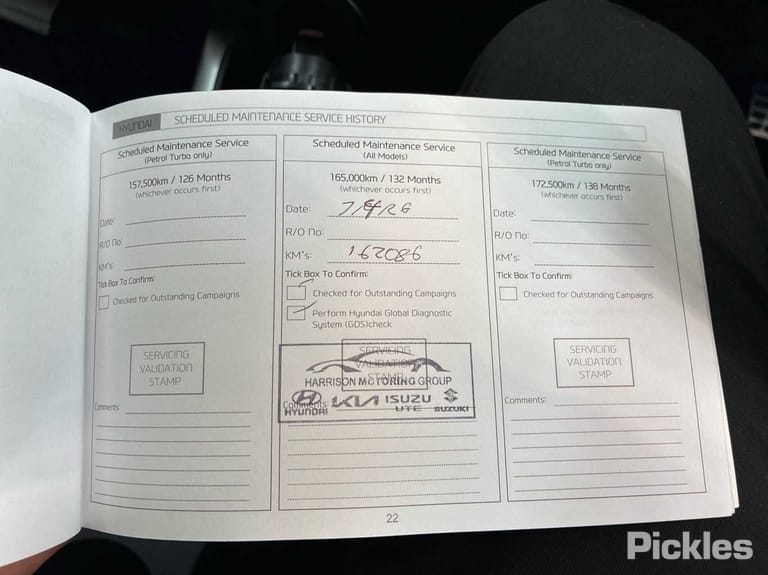 HYUNDAI SCHEDULED MAINTENANCE SERVICE HISTORY
Scheduled Maintenance Service
(Petrol Turbo only)
157,500km / 126 Months
(whichever occurs first)
Date:
R/O No
KM's:
Tick Box To Confirm:
Checked for Outstanding Campaigns
SERVICING
VALIDATION
STAMP
Comments:
Scheduled Maintenance Service
(All Models)
165,000km / 132 Months
(whichever occurs first)
Date:
R/O No:
KM's: 162086
Tick Box To Confirm:
Checked for Outstanding Campaigns
Perform Hyundai Global Diagnostic
System (GDS)check
SERVICING
VALIDATION
STAMP
HARRISON MOTORING GROUP
Comments:
HYUNDAI KIA ISUZU UTE SUZUKI
Scheduled Maintenance Service
(Petrol Turbo only)
172,500km / 138 Months
(whichever occurs first)
Date:
R/O No:
KM's:
Tick Box To Confirm:
Checked for Outstanding Campaigns
SERVICING
VALIDATION
STAMP
Comments:
22
Pickles